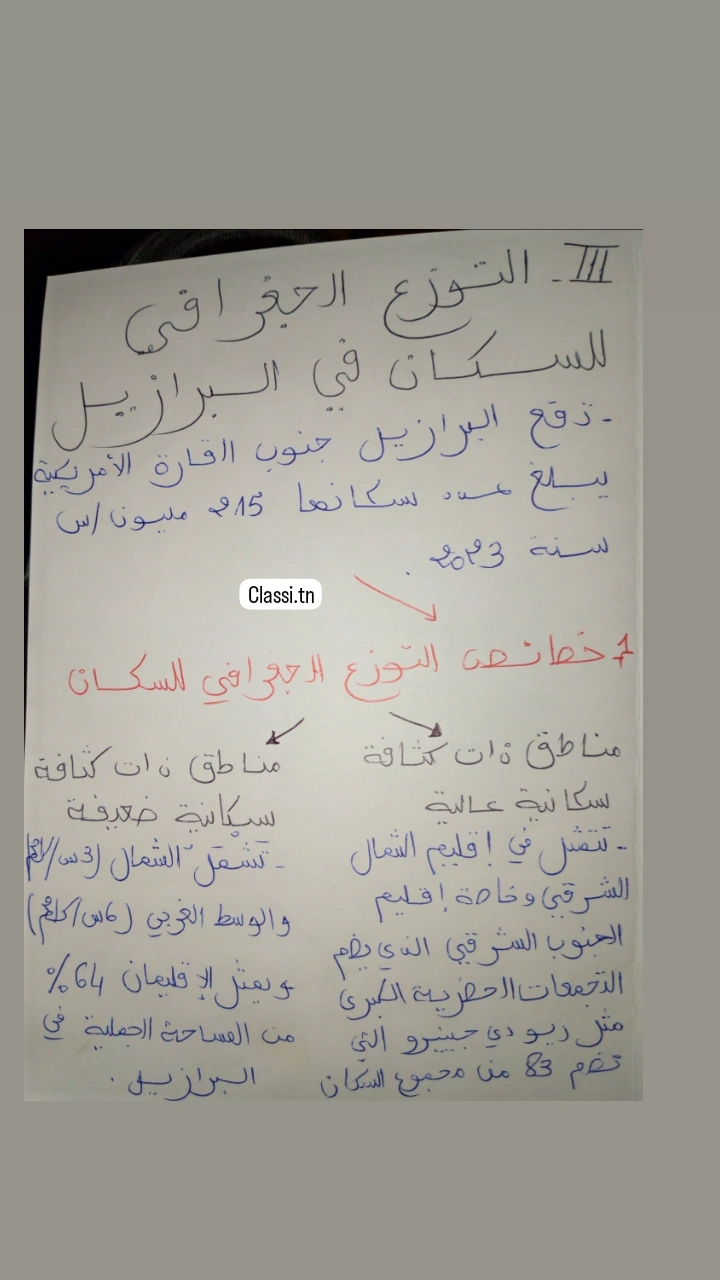 III - التوزع الجغرافي
للسكان في البرازيل
- تقع البرازيل جنوب القارة الأمريكية
يبلغ عدد سكانها 215 مليون/س
سنة 2023 .
Classi.tn
1 خصائص التوزع الجغرافي للسكان
مناطق ذات كثافة
سكانية عالية
- تتمثل في إقليم الشمال
الشرقي وخاصة إقليم
الجنوب الشرقي الذي يضم
التجمعات الحضرية الكبرى
مثل ريو دي جينيرو التي
تضم 83 من مجموع السكان
مناطق ذات كثافة
سكانية ضعيفة
- تشمل الشمال (3س/كلم²)
والوسط الغربي (6س/كلم²)
و يمثل الإقليمان 64 %
من المساحة الجملية في
البرازيل .